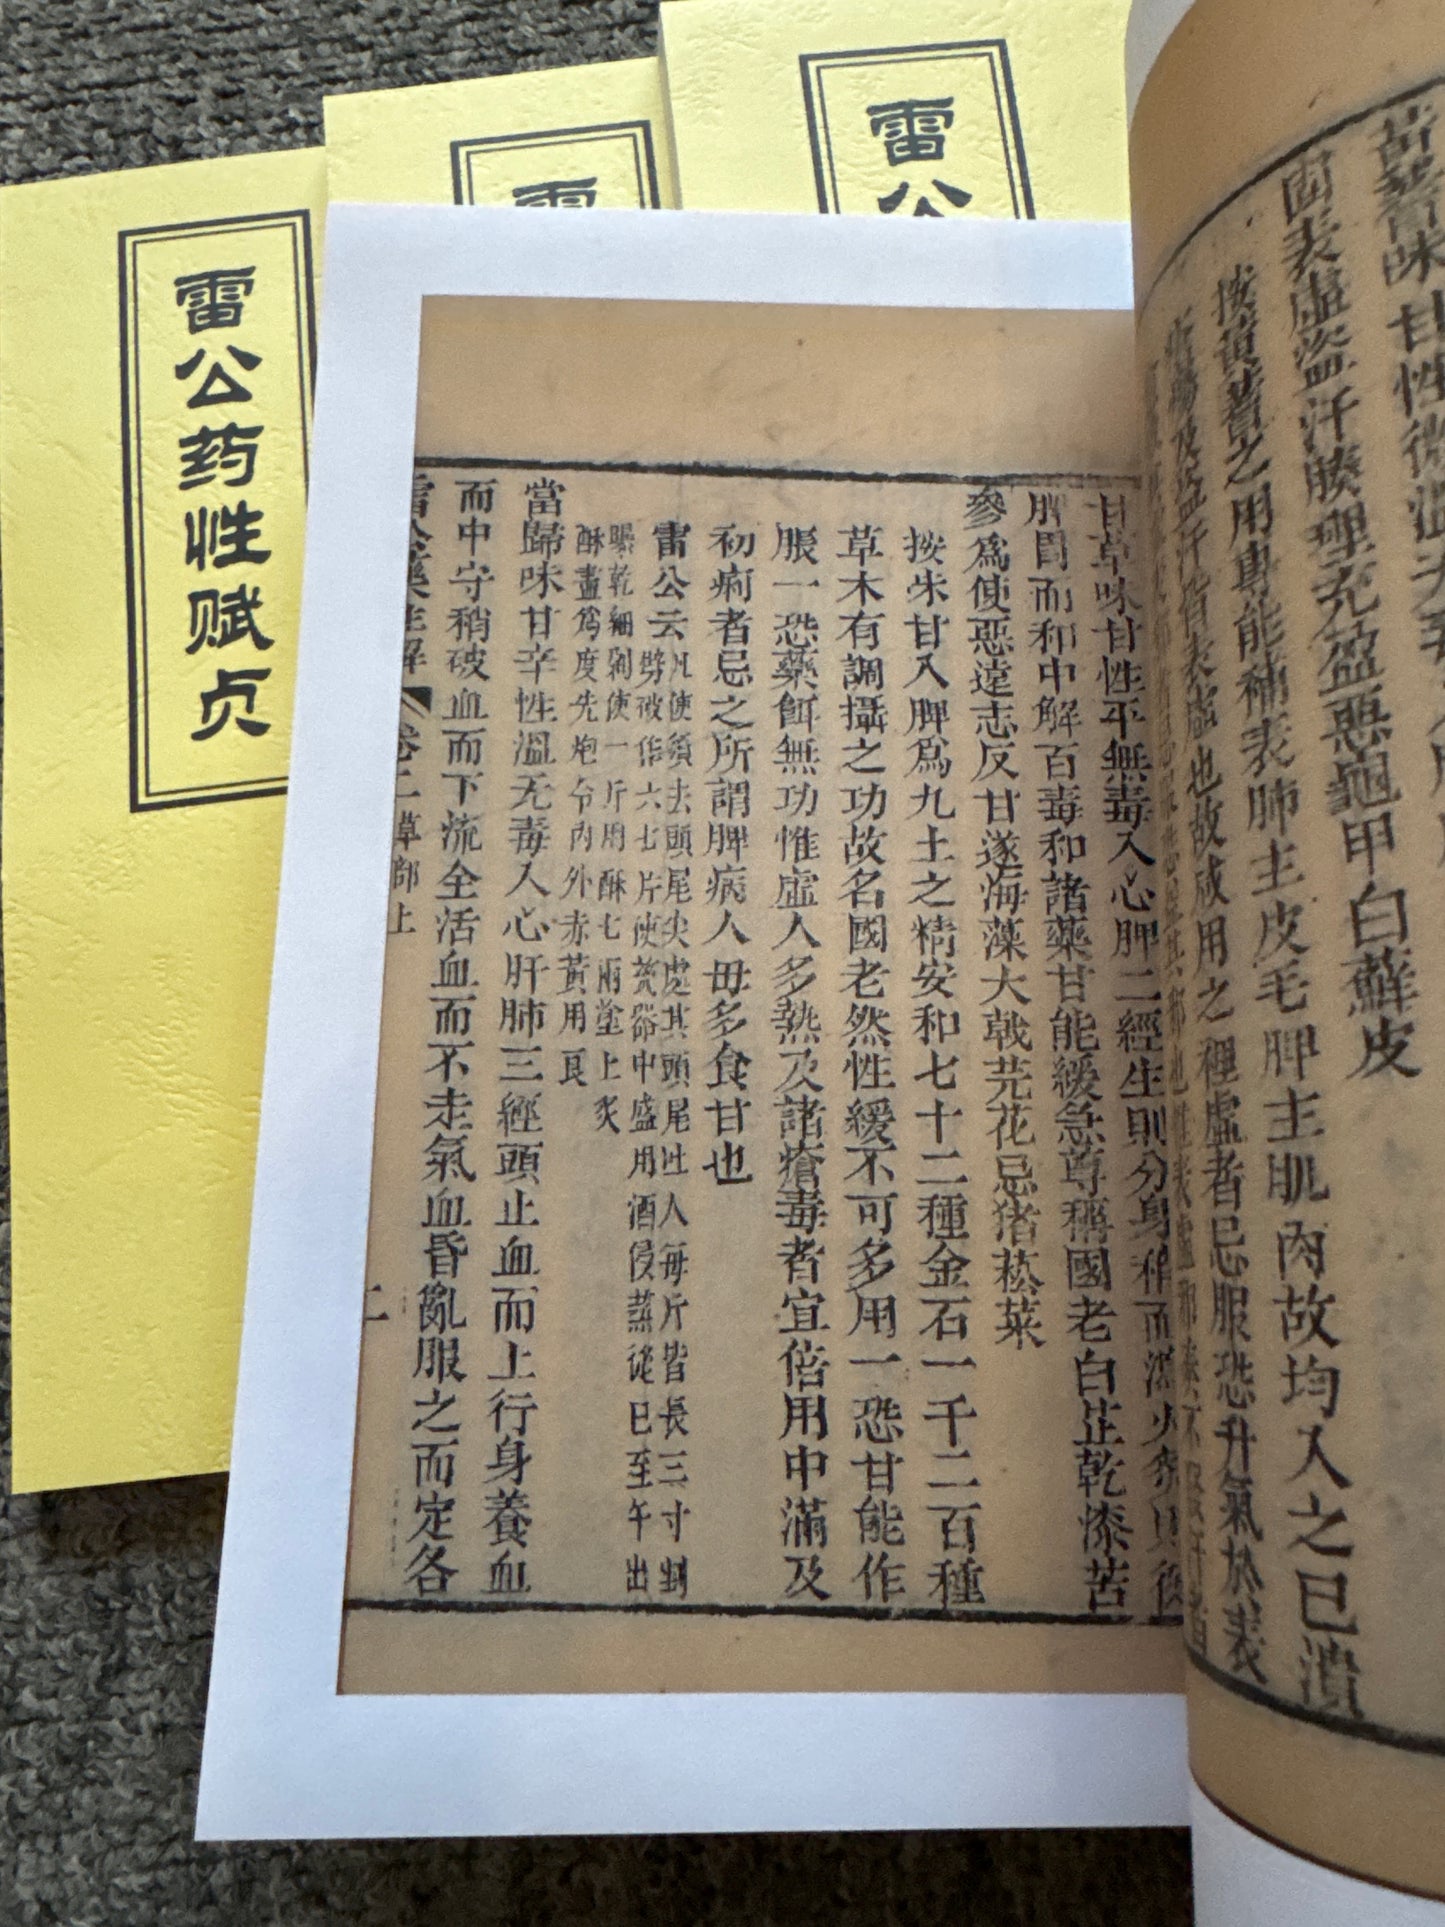 雷公药性赋贞
雷
雷公
苗黃蓍味甘性微溫无毒入
固表虛盜汗腠理充盈惡龜甲白蘚皮
按黃蓍之用專能補表肺主皮毛脾主肌肉故均入之已潰
瘍及盜汗皆表虛也故咸用之裡虛者忌服恐升氣於表
甘草味甘性平無毒入心脾二經生則分身稍而瀉火炙則
脾胃而和中解百毒和諸藥甘能緩急尊稱國老白芷乾漆苦
參爲使惡遠志反甘遂海藻大戟芫花忌猪菘菜
按朱甘入脾爲九土之精安和七十二種金石一千二百種
草木有調攝之功故名國老然性緩不可多用一恐甘能作
脹一恐藥餌無功惟虛人多熱及諸瘡毒者宜倍用中滿及
初痢者忌之所謂脾病人毋多食甘也
雷公云凡使須去頭尾尖處其頭尾吐人每斤皆長三寸剉
劈破作六七片使瓷器中盛用酒侵蒸從巳至午出
曝乾細剉使一斤用酥七兩塗上炙
酥盡爲度先炮令內外赤黃用良
當歸味甘辛性溫无毒入心肝肺三經頭止血而上行身養血
而中守稍破血而下流全活血而不走氣血昏亂服之而定各
雷公藥性解 卷二 草部上 二